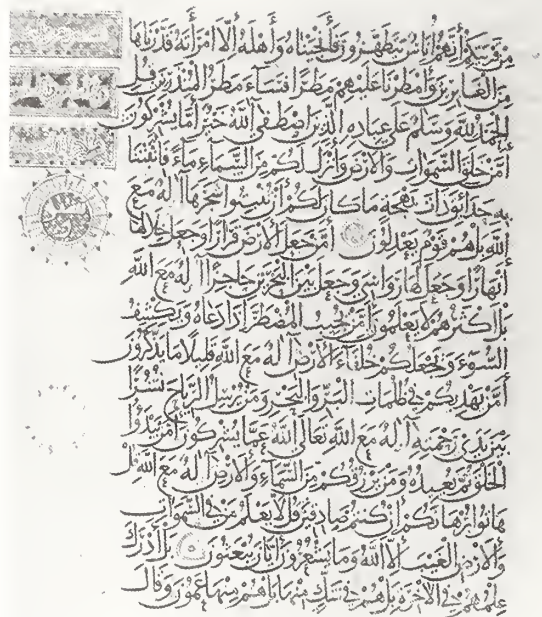 مِن قريتكم إنهم أناس يتطهرون فأنجيناه وأهله إلا امرأته قدرناها
من الغابرين وأمطرنا عليهم مطرا فساء مطر المنذرين قل
الحمد لله وسلم على عباده الذين اصطفى آلله خير أما يشركون
أمن خلق السموات والأرض وأنزل لكم من السماء ماء فأنبتنا
به حدائق ذات بهجة ما كان لكم أن تنبتوا شجرها أاله مع
الله بل هم قوم يعدلون أمن جعل الأرض قرارا وجعل خلالها
أنهارا وجعل لها رواسي وجعل بين البحرين حاجزا أاله مع الله
بل أكثرهم لا يعلمون أمن يجيب المضطر إذا دعاه ويكشف
السوء ويجعلكم خلفاء الأرض أاله مع الله قليلا ما تذكرون
أمن يهديكم في ظلمات البر والبحر ومن يرسل الرياح نشرا
بين يدي رحمته أاله مع الله تعالى الله عما يشركون أمن يبدؤا
الخلق ثم يعيده ومن يرزقكم من السماء والأرض أاله مع الله قل
هاتوا برهانكم إن كنتم صادقين قل لا يعلم من في السموات
والأرض الغيب إلا الله وما يشعرون أيان يبعثون بل أدرك
علمهم في الآخرة بل هم في شك منها بل هم منها عمون وقال